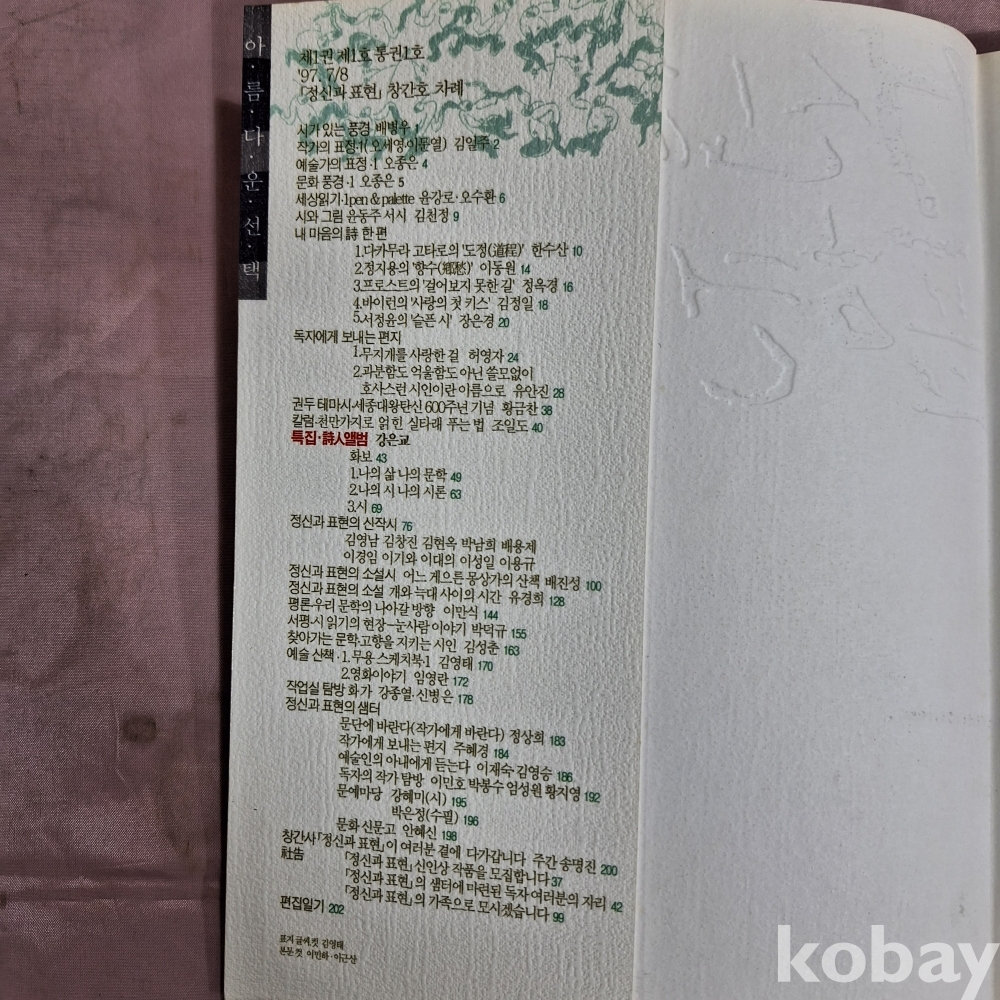 아·름·다·운·선·택
제1권 제1호 통권1호
'97. 7/8
「정신과 표현」 창간호 차례
시가 있는 풍경 배병우 1
작가의 표정·1(오세영·이문열) 김일주 2
예술가의 표정·1 오종은 4
문화 풍경·1 오종은 5
세상읽기·1pen & palette 윤강로·오수환 6
시와 그림 윤동주 서시 김천정 9
내 마음의 詩 한 편
1.다카무라 고타로의 '도정(道程)' 한수산 10
2.정지용의 '향수(鄕愁)' 이동원 14
3.프로스트의 '걸어보지 못한 길' 정옥경 16
4.바이런의 '사랑의 첫 키스' 김정일 18
5.서정윤의 '슬픈 시' 장은경 20
독자에게 보내는 편지
1.무지개를 사랑한 걸 허영자 24
2.과분함도 억울함도 아닌 쓸모없이
호사스런 시인이란 이름으로 유안진 28
권두 테마시·세종대왕탄신 600주년 기념 황금찬 38
칼럼·천만가지로 얽힌 실타래 푸는 법 조일도 40
특집·詩人앨범 강은교
화보 43
1.나의 삶 나의 문학 49
2.나의 시 나의 시론 63
3.시 69
정신과 표현의 신작시 76
김영남 김창진 김현옥 박남희 배용제
이경임 이기와 이대의 이성일 이용규
정신과 표현의 소설시 어느 게으른 몽상가의 산책 배진성 100
정신과 표현의 소설 개와 늑대 사이의 시간 유경희 128
평론·우리 문학의 나아갈 방향 이만식 144
서평·시 읽기의 현장-눈사람 이야기 박덕규 155
찾아가는 문학·고향을 지키는 시인 김성춘 163
예술 산책·1.무용 스케치북·1 김영태 170
2.영화이야기 임영란 172
작업실 탐방 화가 강종열·신병은 178
정신과 표현의 샘터
문단에 바란다(작가에게 바란다) 정상희 183
작가에게 보내는 편지 주혜경 184
예술인의 아내에게 듣는다 이재숙·김영승 186
독자의 작가 탐방 이민호 박봉수 엄성원 황지영 192
문예마당 강혜미(시) 195
박은정(수필) 196
문화 신문고 안혜신 198
창간사 「정신과 표현」이 여러분 곁에 다가갑니다 주간 송명진 200
社告 「정신과 표현」 신인상 작품을 모집합니다 37
「정신과 표현」의 샘터에 마련된 독자 여러분의 자리 42
「정신과 표현」의 가족으로 모시겠습니다 99
편집일기 202
표지 글씨,컷 김영태
본문 컷 이민하·이근상
kobay